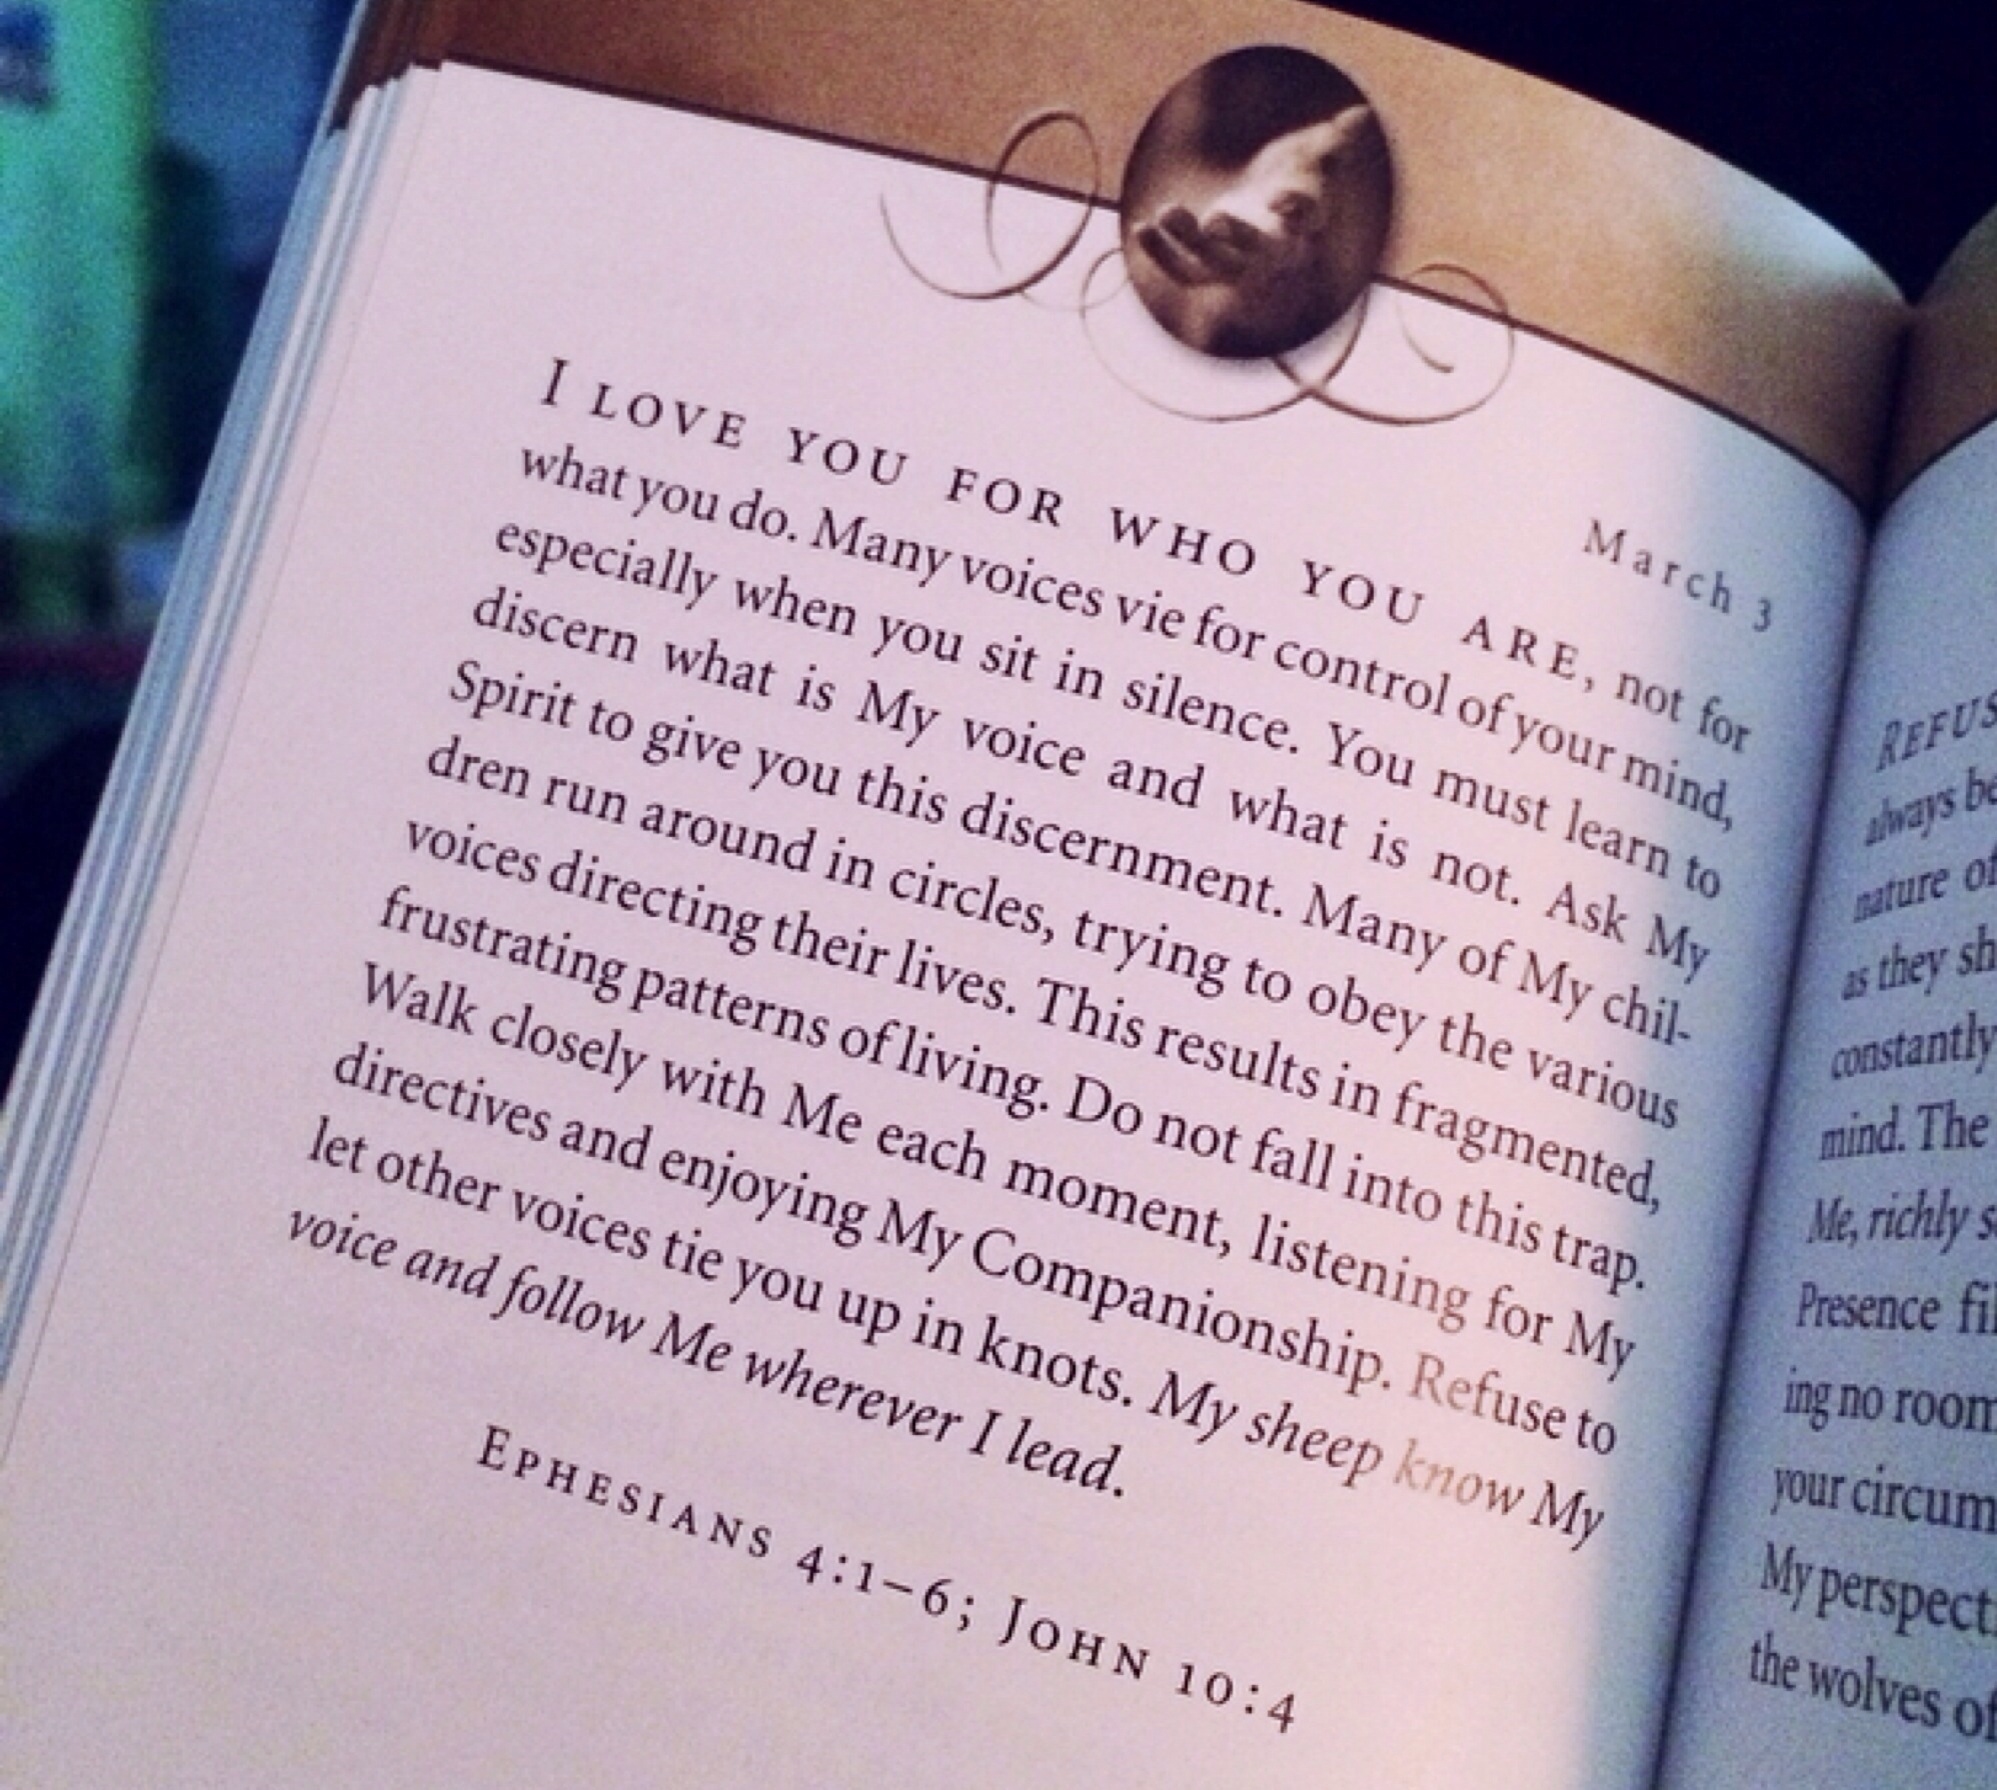 March 3
I LOVE YOU FOR WHO YOU ARE, not for
what you do. Many voices vie for control of your mind,
especially when you sit in silence. You must learn to
discern what is My voice and what is not. Ask My
Spirit to give you this discernment. Many of My chil-
dren run around in circles, trying to obey the various
voices directing their lives. This results in fragmented,
frustrating patterns of living. Do not fall into this trap.
Walk closely with Me each moment, listening for My
directives and enjoying My Companionship. Refuse to
let other voices tie you up in knots. My sheep know My
voice and follow Me wherever I lead.
EPHESIANS 4:1–6; JOHN 10:4
REFUS
always be
nature of
as they sh
constantly
mind. The
Me, richly s
Presence fil
ing no room
your circum
My perspect
the wolves of